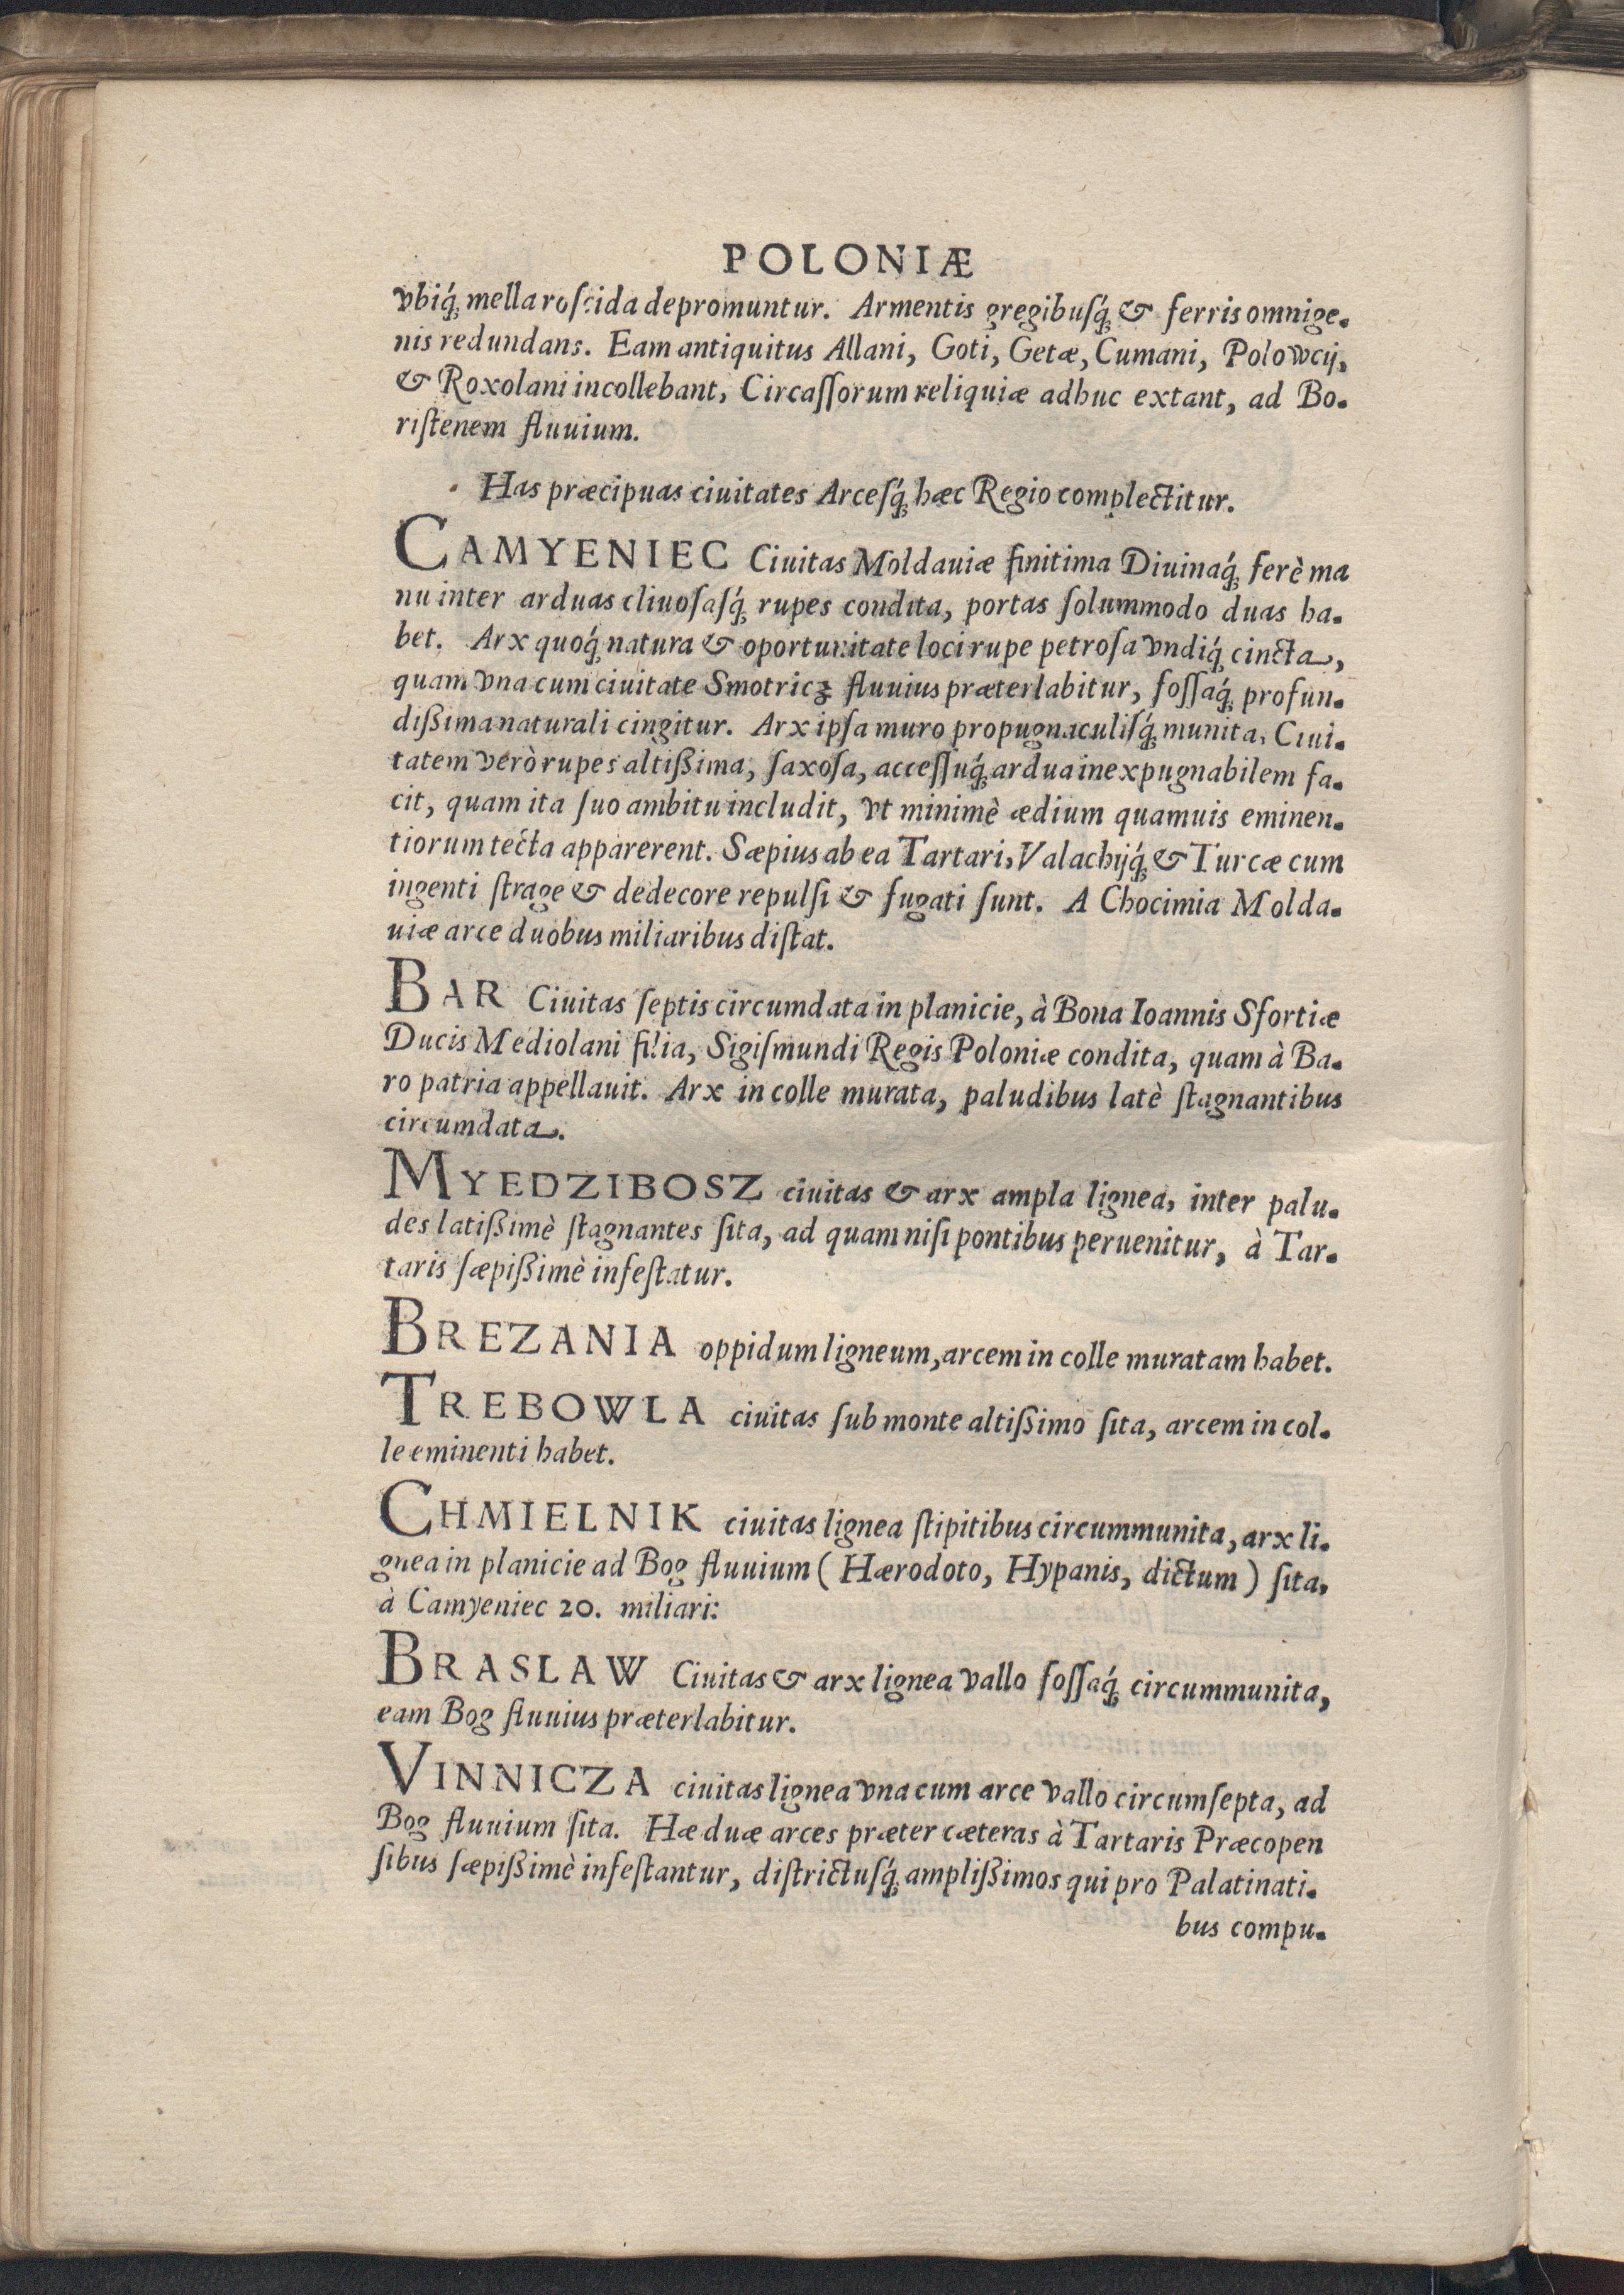 POLONIÆ
vbiq́; mella roſcida depromuntur. Armentis gregibuſq́; & ferris omnige-
nis redundans. Eam antiquitus Allani, Goti, Getæ, Cumani, Polowcij,
& Roxolani incollebant, Circaſſorum reliquiæ adhuc extant, ad Bo-
riſtenem fluuium.
Has præcipuas ciuitates Arceſq́; hæc Regio complectitur.
CAMYENIEC Ciuitas Moldauiæ finitima Diuinaq́; ferè ma
nu inter arduas cliuoſaſq́; rupes condita, portas ſolummodo duas ha-
bet. Arx quoq́; natura & oportunitate loci rupe petroſa vndiq́; cincta,
quam vna cum ciuitate Smotricz fluuius præterlabitur, foſſaq́; profun-
dißima naturali cingitur. Arx ipſa muro propugnaculiſq́; munita, Ciui-
tatem verò rupes altißima, ſaxoſa, acceſſuq́; ardua inexpugnabilem fa-
cit, quam ita ſuo ambitu includit, vt minimè ædium quamuis eminen-
tiorum tecta apparerent. Sæpius ab ea Tartari, Valachijq́; & Turcæ cum
ingenti ſtrage & dedecore repulſi & fugati ſunt. A Chocimia Molda-
uiæ arce duobus miliaribus diſtat.
BAR Ciuitas ſeptis circumdata in planicie, à Bona Ioannis Sfortiæ
Ducis Mediolani filia, Sigiſmundi Regis Poloniæ condita, quam à Ba-
ro patria appellauit. Arx in colle murata, paludibus latè ſtagnantibus
circumdata.
MYEDZIBOSZ ciuitas & arx ampla lignea, inter palu-
des latißimè ſtagnantes ſita, ad quam niſi pontibus peruenitur, à Tar-
taris ſæpißimè infeſtatur.
BREZANIA oppidum ligneum, arcem in colle muratam habet.
TREBOWLA ciuitas ſub monte altißimo ſita, arcem in col-
le eminenti habet.
CHMIELNIK ciuitas lignea ſtipitibus circummunita, arx li-
gnea in planicie ad Bog fluuium (Hærodoto, Hypanis, dictum) ſita,
à Camyeniec 20. miliari:
BRASLAW Ciuitas & arx lignea vallo foſſaq́; circummunita,
eam Bog fluuius præterlabitur.
VINNICZA ciuitas lignea vna cum arce vallo circumſepta, ad
Bog fluuium ſita. Hæ duæ arces præter cæteras à Tartaris Præcopen
ſibus ſæpißimè infeſtantur, diſtrictuſq́; amplißimos qui pro Palatinati-
bus compu-